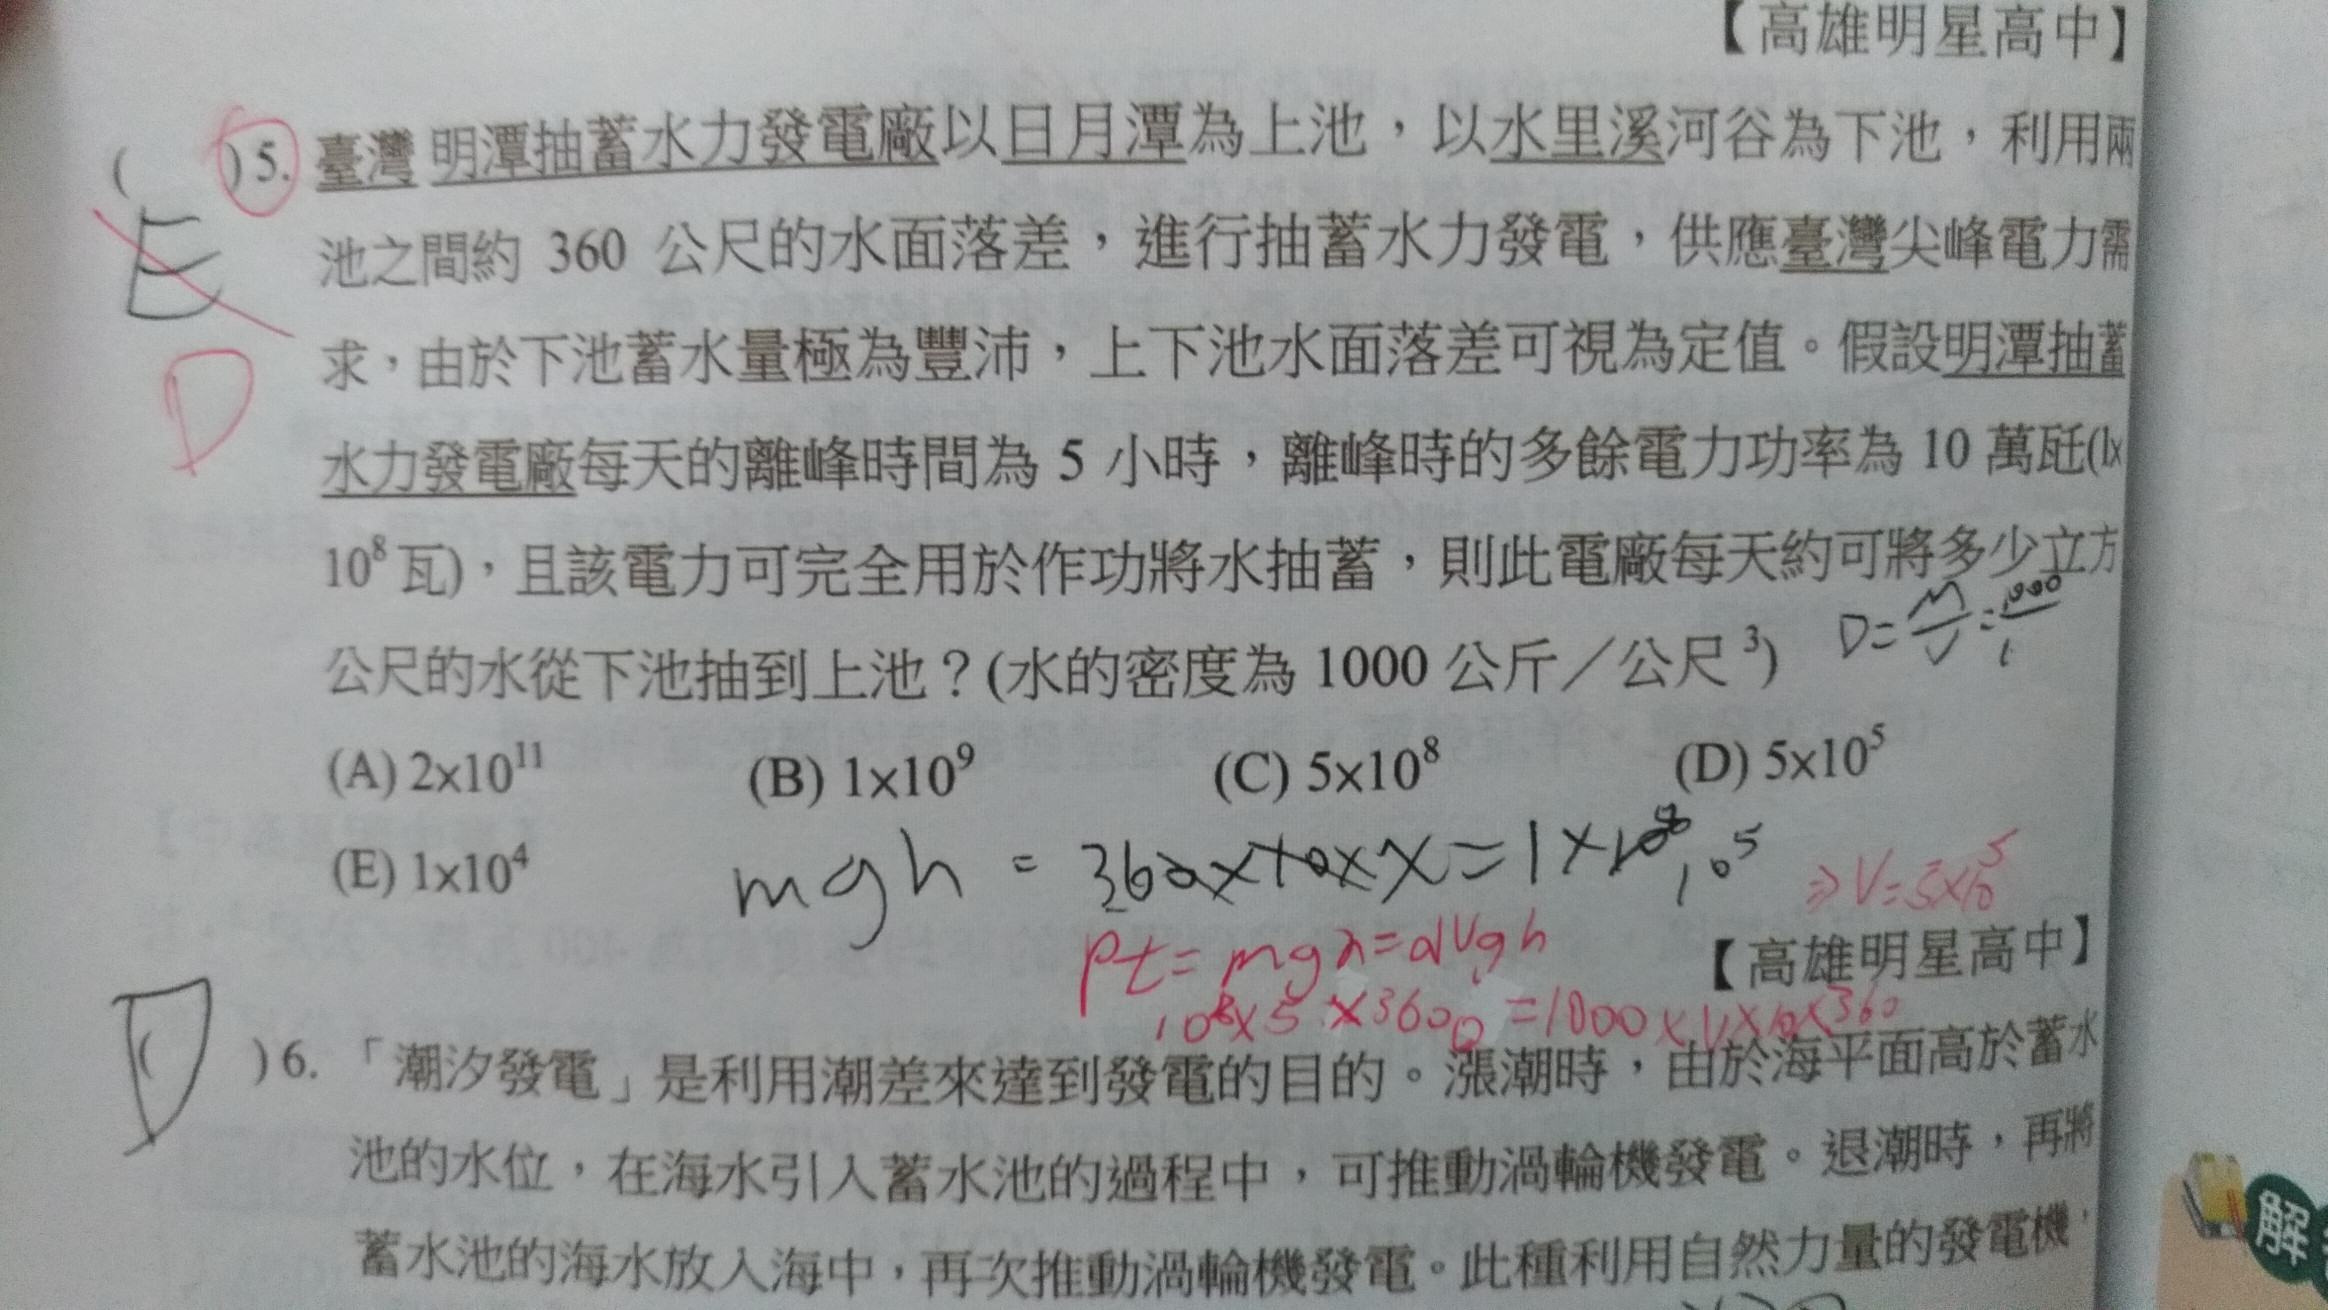 【高雄明星高中】
( )5. 臺灣 明潭抽蓄水力發電廠以日月潭為上池，以水里溪河谷為下池，利用兩
池之間約 360 公尺的水面落差，進行抽蓄水力發電，供應臺灣尖峰電力需
E
求，由於下池蓄水量極為豐沛，上下池水面落差可視為定值。假設明潭抽蓄
D
水力發電廠每天的離峰時間為 5 小時，離峰時的多餘電力功率為 10 萬瓩(1x
10⁸ 瓦)，且該電力可完全用於作功將水抽蓄，則此電廠每天約可將多少立方
公尺的水從下池抽到上池？(水的密度為 1000 公斤／公尺³)
D=M/V=1000/1
(A) 2x10¹¹ (B) 1x10⁹ (C) 5x10⁸ (D) 5x10⁵
(E) 1x10⁴
mgh = 360x10xX=1x10⁸ 10⁵
⇒V=5x10⁵
Pt=mgh=dVgh
【高雄明星高中】
10⁸x5x3600=1000xVx10x360
D
( )6. 「潮汐發電」是利用潮差來達到發電的目的。漲潮時，由於海平面高於蓄水
池的水位，在海水引入蓄水池的過程中，可推動渦輪機發電。退潮時，再將
蓄水池的海水放入海中，再次推動渦輪機發電。此種利用自然力量的發電機，
解